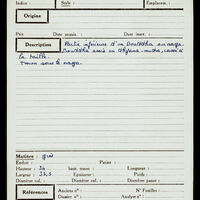 Indez :
Style :
Emplacem. :
Origine
Prix
Date acquis. :
Date inscr. :
Description
Partie inférieure d'un Bouddha au naga.
Bouddha assis en dhyana-mudra, cassé à
la taille.
Tenon sous le naga.
Matière : grès
Enduit :
Patine :
Hauteur : 34
haut. tenon :
Longueur :
Largeur : 33,5
Epaisseur :
Poids :
Diamètre col. :
Diamètre panse :
Références
Anciens nos :
N° Fouilles :
Dossier :
Analyse n° :